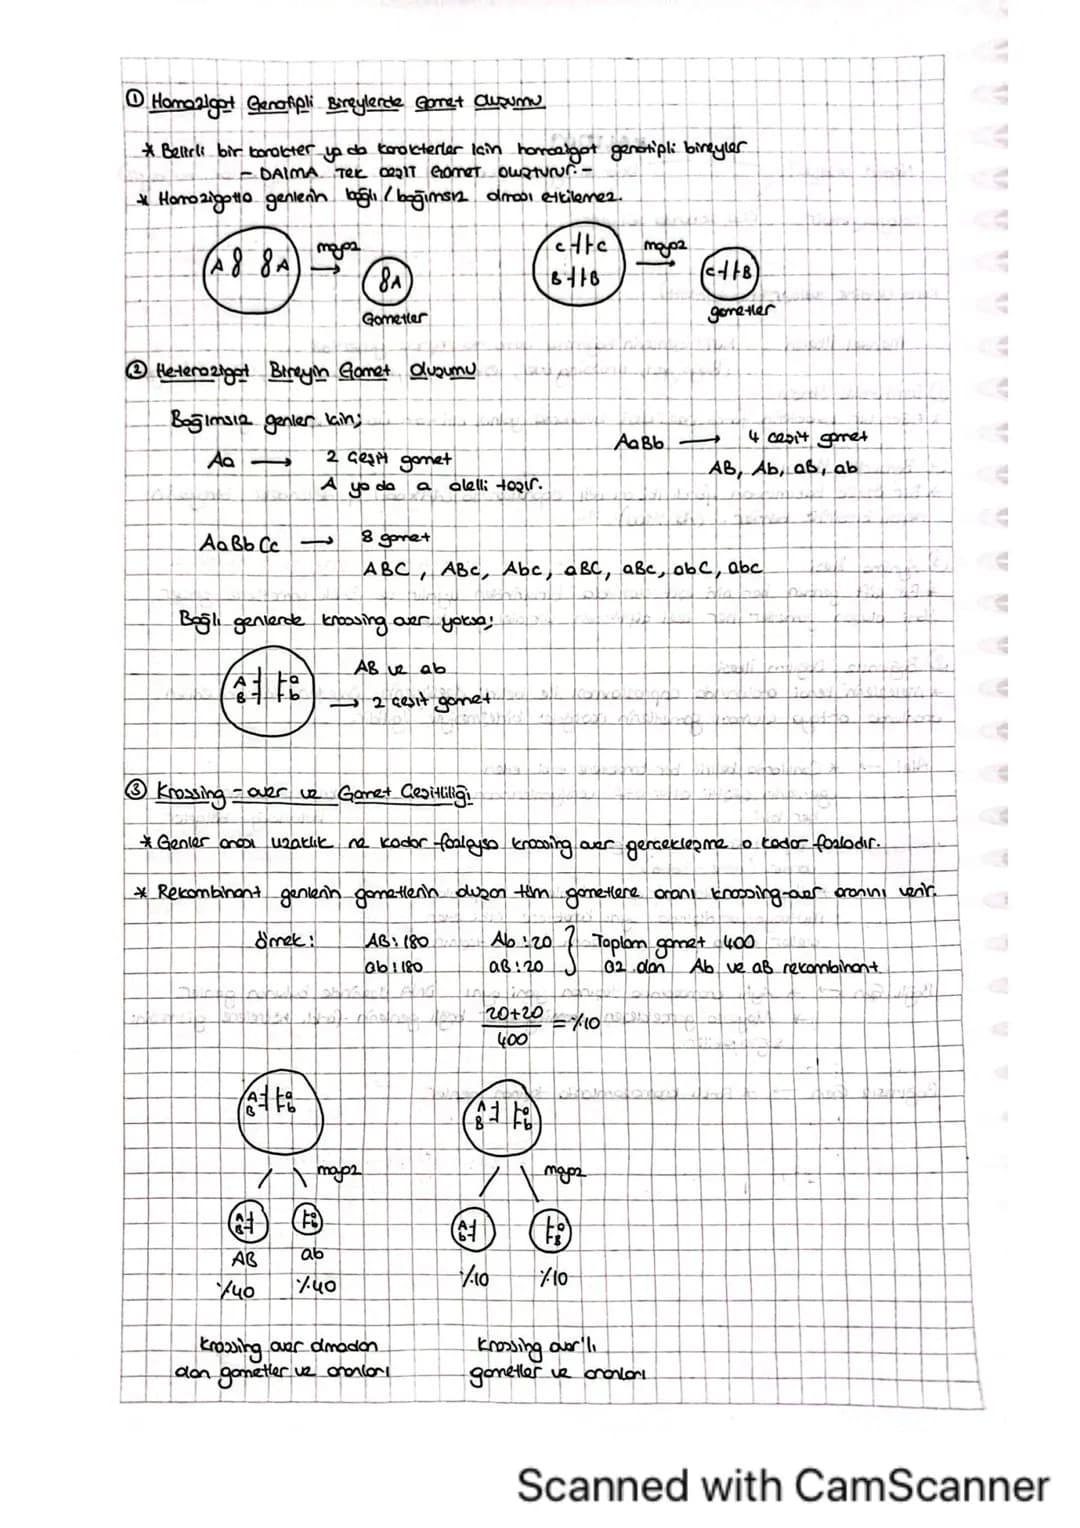 ① Homozigot Genotipli Bireylerde Gamet Oluşumu
* Belirli bir karakter ya da karakterler için homozigot genotipli bireyler
- DAİMA TEK ÇEŞİT GAMET OLUŞTURUR. -
* Homozigotta genlerin bağlı / bağımsız olması etkilemez.
A A mayoz A
Gametler
c c
B B mayoz c B
gametler
② Heterozigot Bireyin Gamet Oluşumu
Bağımsız genler için;
Aa → 2 çeşit gamet
A ya da a alelli taşır.
AaBb → 4 çeşit gamet
AB, Ab, aB, ab
AaBbCc → 8 gamet
ABC, ABc, Abc, aBC, aBc, abC, abc
Bağlı genlerde krossing over yoksa;
A a
B b
AB ve ab
→ 2 çeşit gamet
③ Krossing-over ve Gamet Çeşitliliği
* Genler arası uzaklık ne kadar fazlaysa krossing over gerçekleşme o kadar fazladır.
* Rekombinant genlerin gametlerin oluşan tüm gametlere oranı krossing-over oranını verir.
Örnek: AB: 180 Ab: 20 } Toplam gamet 400
ab: 180 aB: 20 az olan Ab ve aB rekombinant
20+20
400
= %10
A a
B b
A a
B b
mayoz mayoz
A
B
a
b
A
b
a
B
AB ab
%40 %40 %10 %10
krossing over olmadan
olan gametler ve oranları
krossing over'lı
gametler ve oranları
Scanned with CamScanner